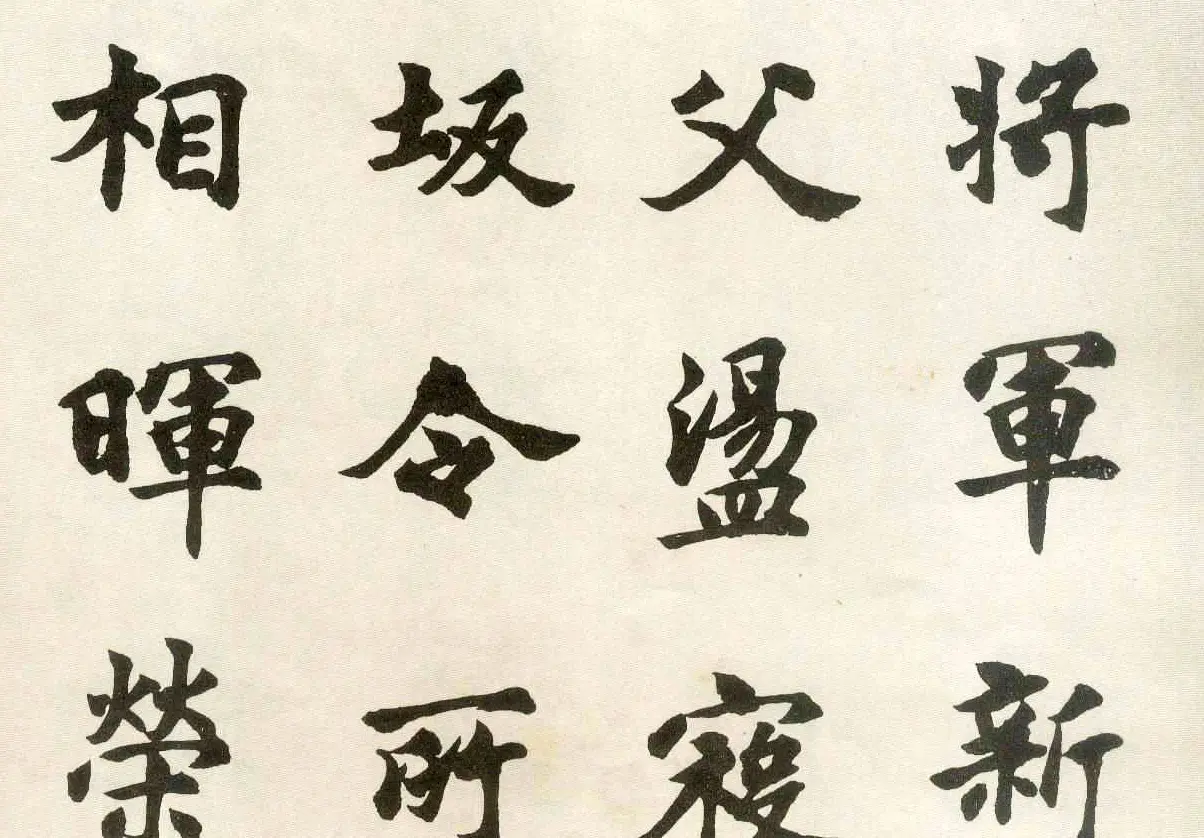 將軍新
父盪寇
坂令所
相暉榮